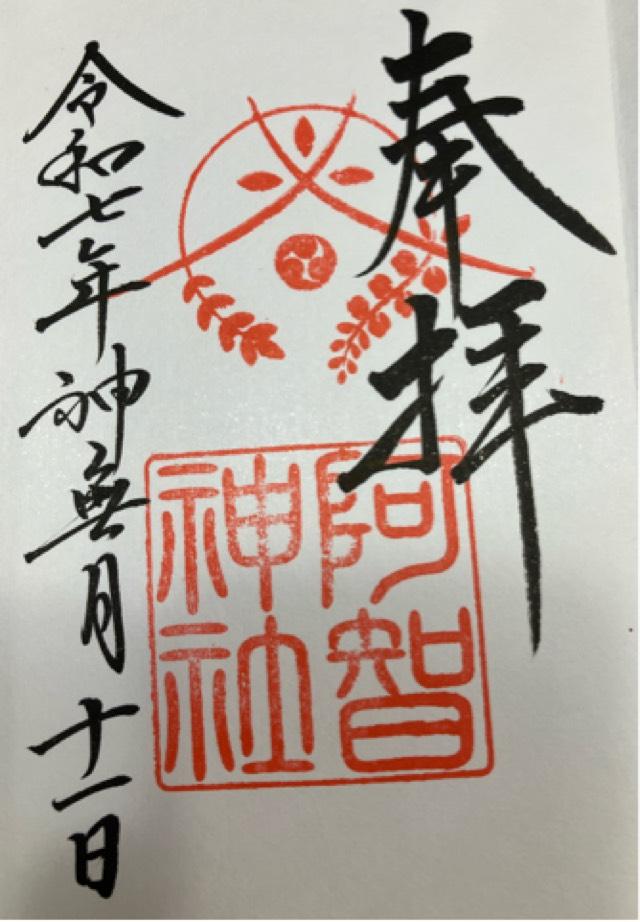 奉拝
阿智
神社
令和七年神無月十一日